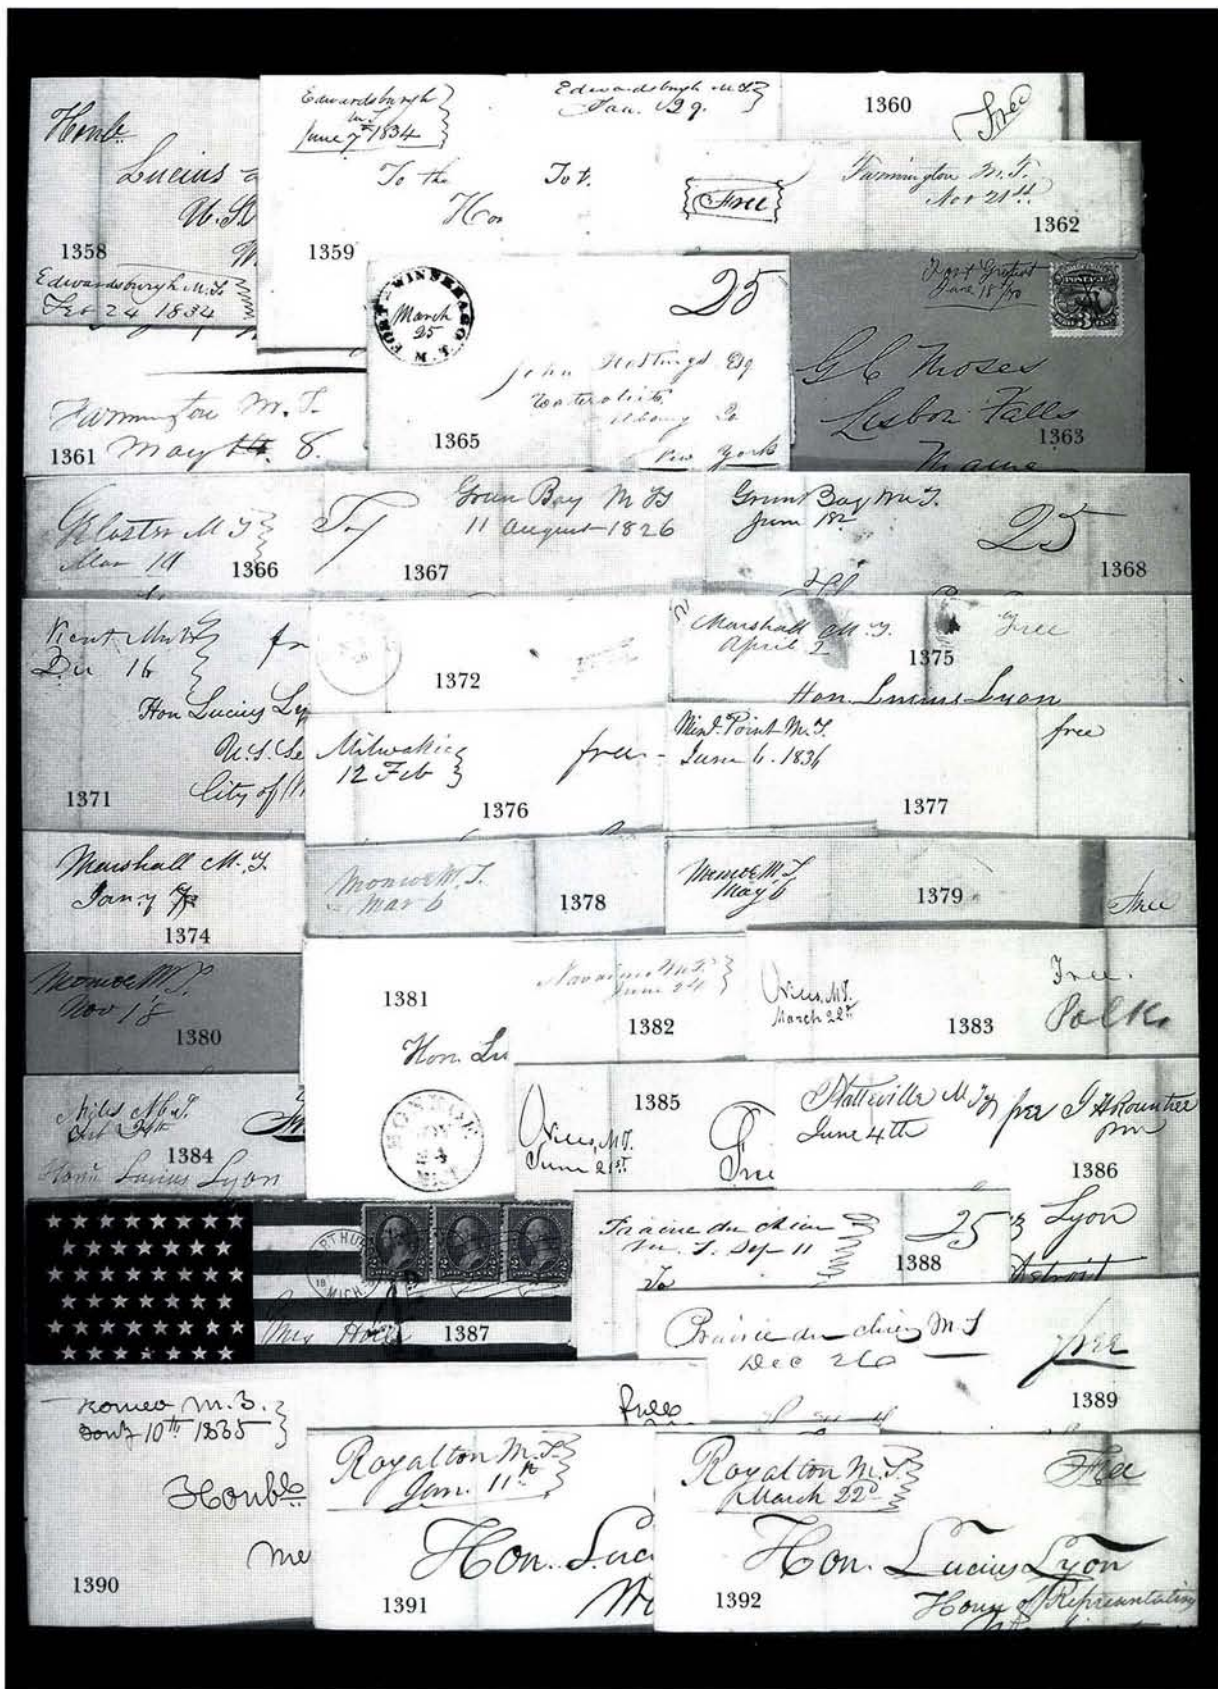 Honble
Lucius
U.S.
1358
Edwardsburgh M.T.
Feb 24 1834
Edwardsburgh
M.T.
June 7th 1834
To the
Ho
1359
Edwardsburgh M.T.
Jan. 29.
To t.
1360
Free
Free
Farmington M.T.
Nov 21st
1362
Farmington M.T.
1361
May 14. 8.
FORT WINNEBAGO M.T.
March
25
25
John Hastings Esq
Albany Co
1365
New York
June 18/70
G C Moses
Lisbon Falls
1363
Maine
M T
Mar 19
1366
1367
Green Bay M T
11 August 1826
Green Bay M.T.
June 18
25
1368
Dec 16
Hon Lucius Ly
U.S. Se
1371
City of W
1372
Marshall M.T.
April 2
1375
Free
Hon. Lucius Lyon
Milwakie
12 Feb
free
1376
Minl. Point M.T.
June 6. 1836
free
1377
Marshall M.T.
Jany
1374
Monroe M.T.
Mar 6
1378
Monroe M.T.
May 6
1379
Free
Monroe M.T.
Nov 18
1380
1381
Hon. Lu
MONROE
NOV
24
M.T.
Navarino M.T.
June 24
1382
M.T.
March 22d
1383
Free.
Polk
Niles M.T.
1384
Lucius Lyon
1385
M.T.
June 21st
Free
Platteville M.T.
June 4th
free J H Rountree
pm
1386
Lyon
Detroit
MICH.
2 2 2
1387
Prairie du chien
M. T. Sep 11
25
1388
To
Prairie du chien M.T
Dec 26
free
1389
Romeo M.T.
Jany 10th 1835
Honble
1390
free
Royalton M.T.
Jan. 11th
Hon. Luc
1391
Royalton M.T.
March 22d
Free
Hon. Lucius Lyon
1392
House of Representatives